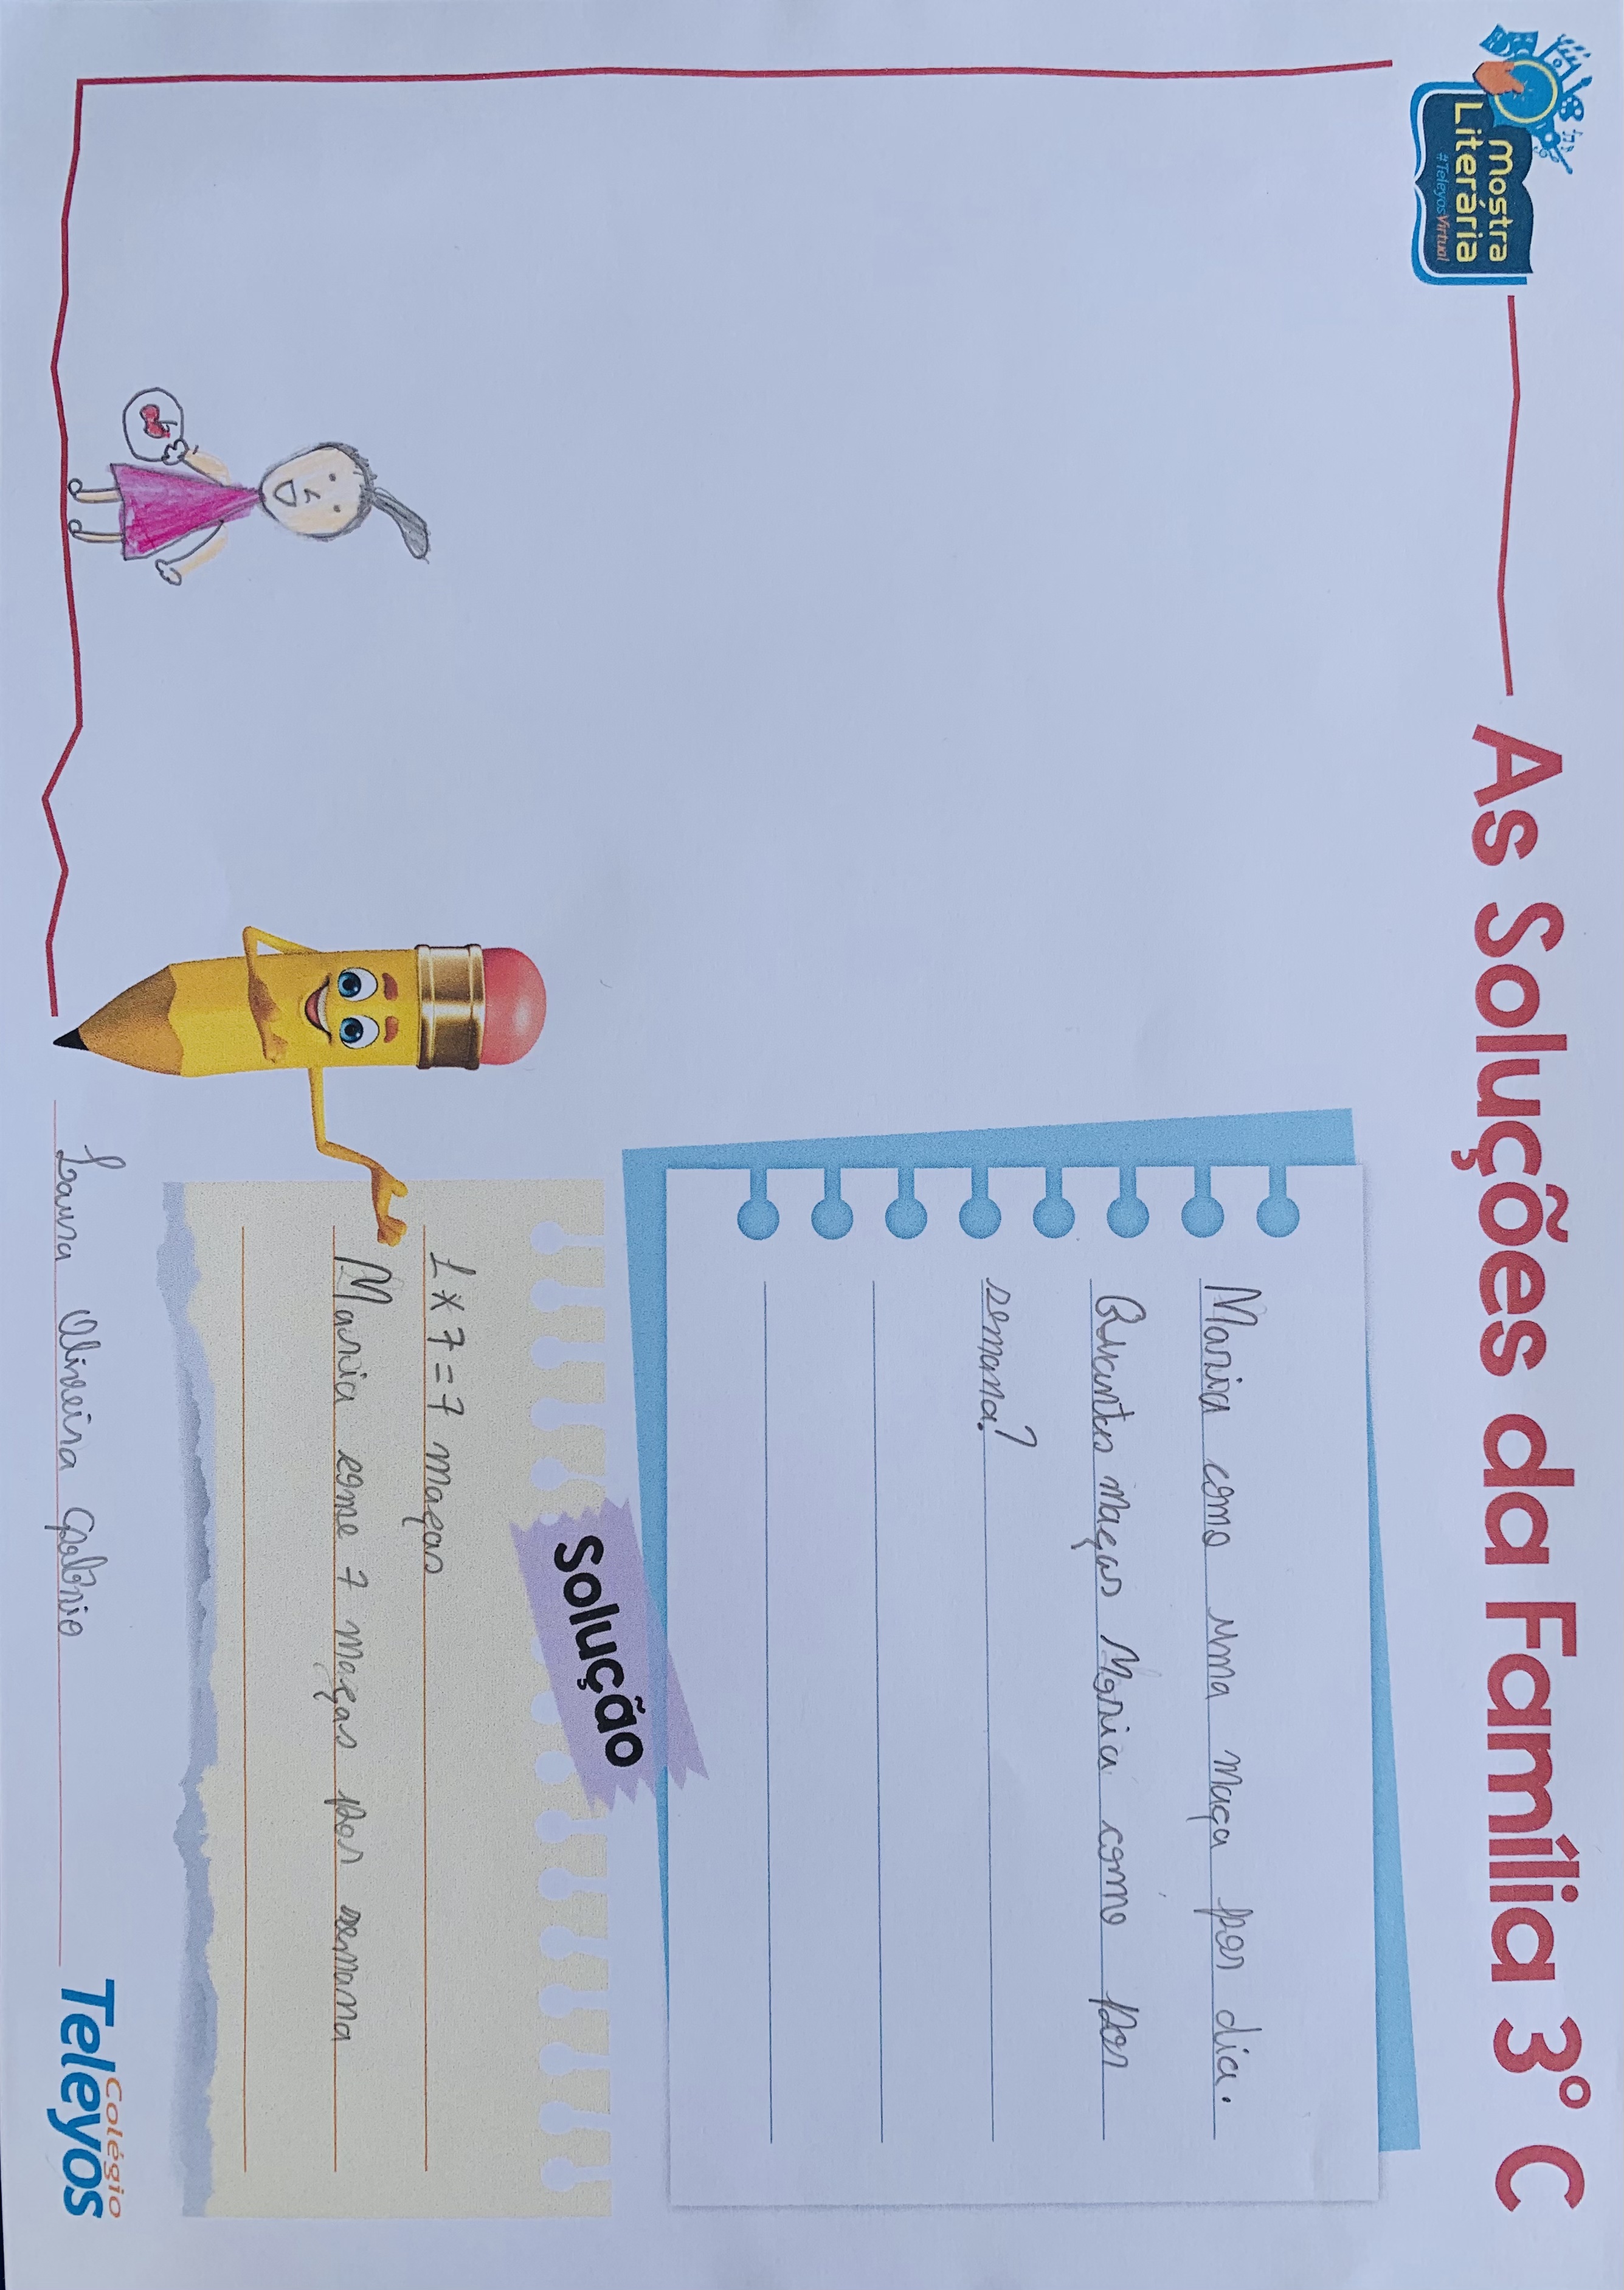 Mostra
Literária
#TeleyosVirtual
As Soluções da Família 3° C
Maria come uma maça por dia.
Quantas maças Maria come por
semana?
Solução
1 x 7 = 7 maças
Maria come 7 maças por semana
Laura Oliveira
Colégio
Teleyos